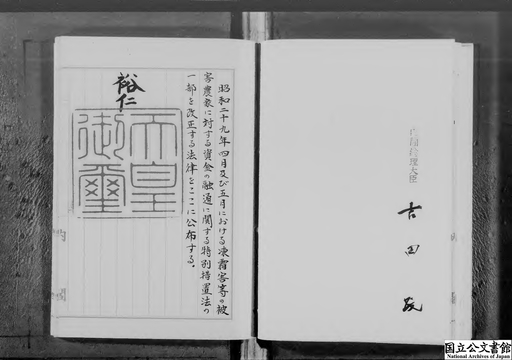 昭和二十九年四月及び五月における凍霜害等の被
害農家に対する資金の融通に関する特別措置法の
一部を改正する法律をここに公布する。
裕仁
天皇
御璽
内閣総理大臣
吉田
内閣
国立公文書館
National Archives of Japan